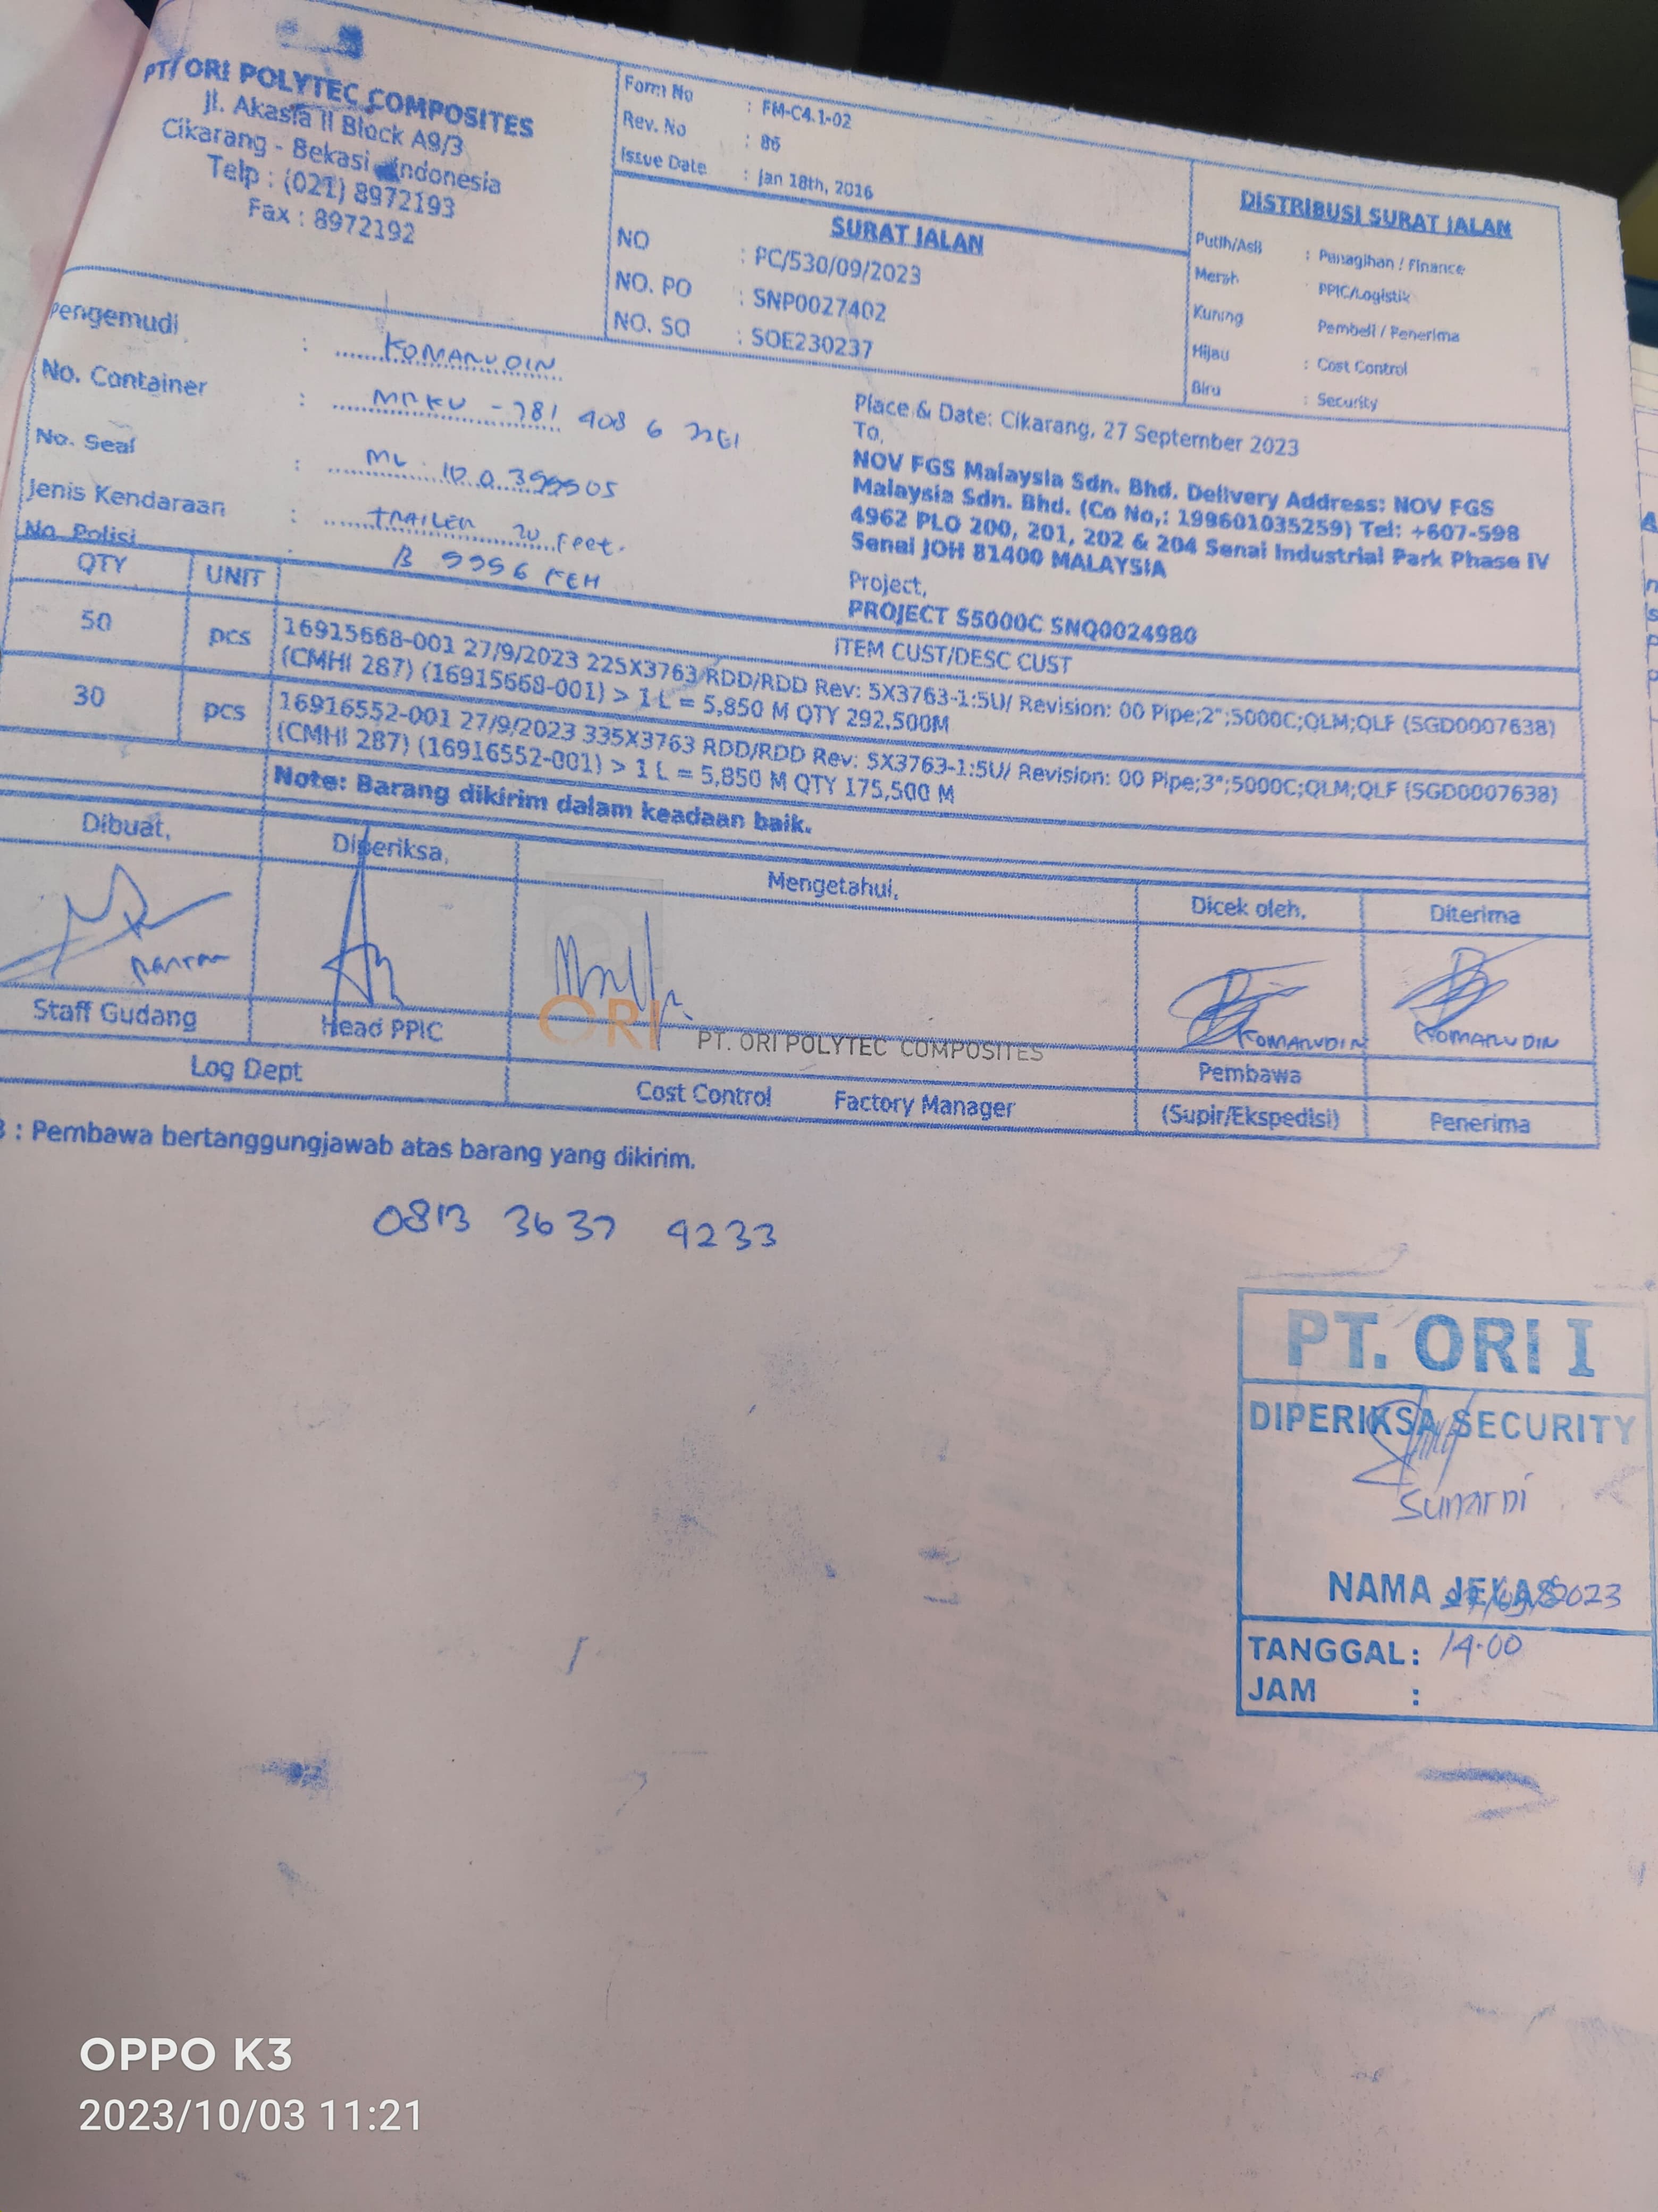 PT ORI POLYTEC COMPOSITES
Jl. Akasia II Block A9/3
Cikarang - Bekasi Indonesia
Telp : (021) 8972193
Fax : 8972192
Form No : FM-C4.1-02
Rev. No : 86
Issue Date : Jan 18th, 2016
SURAT JALAN
NO : PC/530/09/2023
NO. PO : SNP0027402
NO. SO : SOE230237
DISTRIBUSI SURAT JALAN
Putih/Asli : Penagihan / Finance
Merah PPIC/Logistik
Kuning Pembeli / Penerima
Hijau : Cost Control
Biru : Security
Pengemudi : KOMARUDIN
No. Container :
No. Seal :
Jenis Kendaraan : TRAILER 20 Feet.
No. Polisi : B
Place & Date: Cikarang, 27 September 2023
To,
NOV FGS Malaysia Sdn. Bhd. Delivery Address: NOV FGS
Malaysia Sdn. Bhd. (Co No,: 199601035259) Tel: +607-598
4962 PLO 200, 201, 202 & 204 Senai Industrial Park Phase IV
Senai JOH 81400 MALAYSIA
Project,
PROJECT S5000C SNQ0024980
QTY UNIT ITEM CUST/DESC CUST
50 pcs 16915668-001 27/9/2023 225X3763 RDD/RDD Rev: 5X3763-1:5U/ Revision: 00 Pipe;2";5000C;QLM;QLF (SGD0007638)
(CMHI 287) (16915668-001) > 1 L = 5,850 M QTY 292,500M
30 pcs 16916552-001 27/9/2023 335X3763 RDD/RDD Rev: 5X3763-1:5U/ Revision: 00 Pipe;3";5000C;QLM;QLF (SGD0007638)
(CMHI 287) (16916552-001) > 1 L = 5,850 M QTY 175,500 M
Note: Barang dikirim dalam keadaan baik.
Dibuat, Diperiksa, Mengetahui, Dicek oleh, Diterima
KOMARUDIN KOMARUDIN
ORI PT. ORI POLYTEC COMPOSITES
Staff Gudang Head PPIC Pembawa
Log Dept Cost Control Factory Manager (Supir/Ekspedisi) Penerima
: Pembawa bertanggungjawab atas barang yang dikirim.
0813 3637 4233
PT. ORI I
DIPERIKSA SECURITY
Sunarni
NAMA JELAS
TANGGAL : 14.00
JAM :
OPPO K3
2023/10/03 11:21